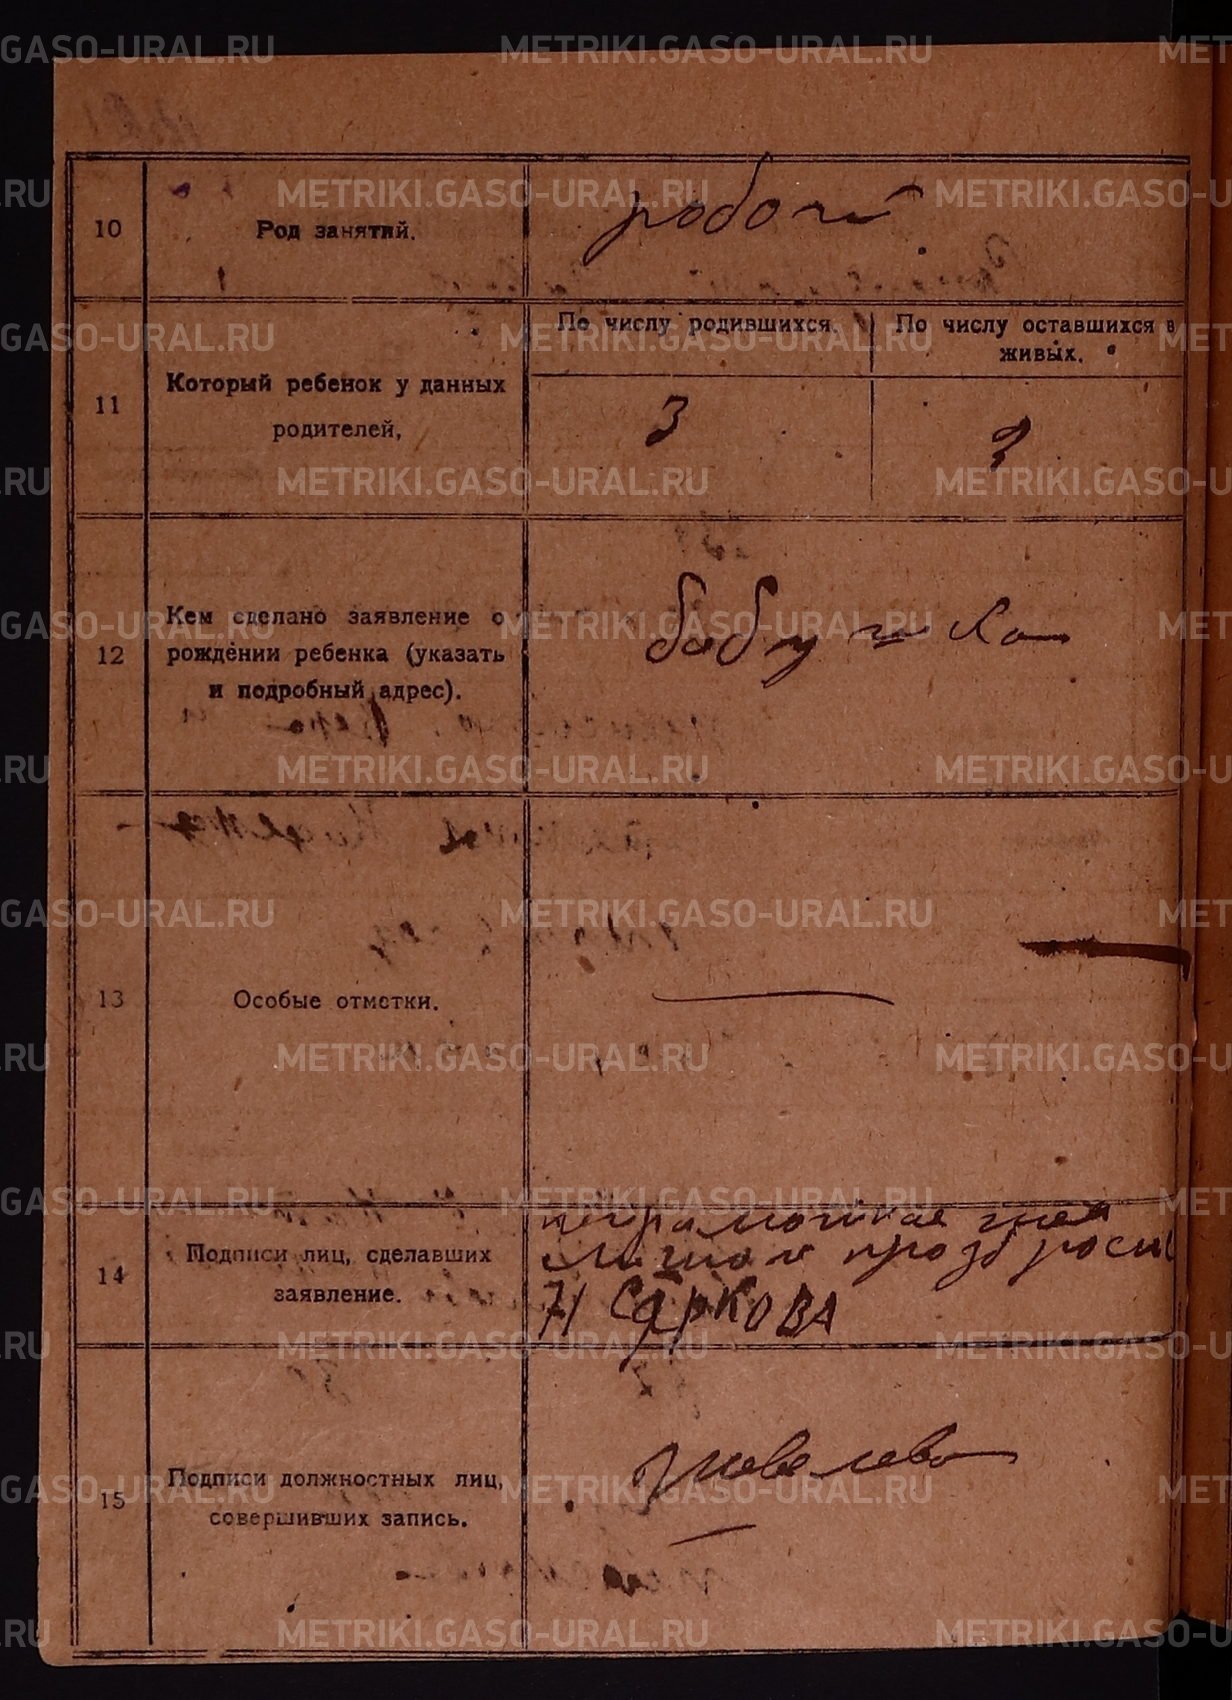 METRIKI.GASO-URAL.RU
10
Род занятий.
рабочий
11
Который ребенок у данных
родителей,
По числу родившихся.
По числу оставшихся в
живых.
3
2
12
Кем сделано заявление о
рождении ребенка (указать
и подробный адрес).
бабушка
13
Особые отметки.
14
Подписи лиц, сделавших
заявление.
неграмотная
СЯРКОВА
15
Подписи должностных лиц,
совершивших запись.